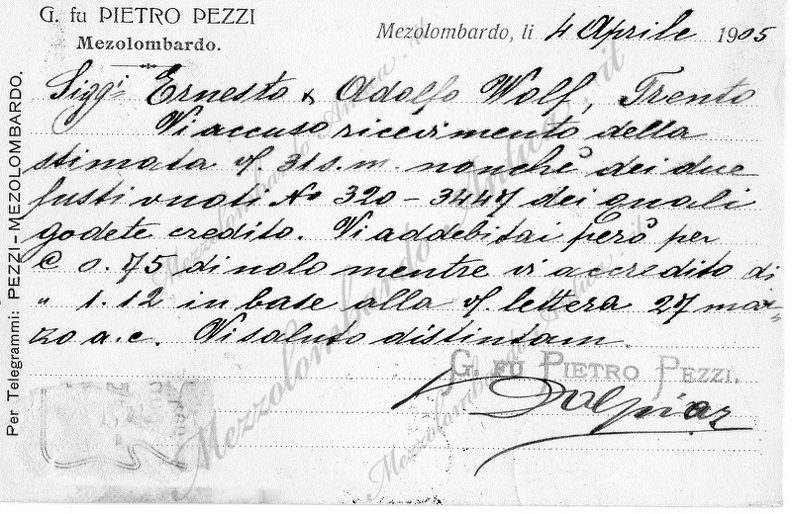 G. fu PIETRO PEZZI
Mezolombardo.
Mezolombardo, li 4 Aprile 1905
Sigg.i Ernesto & Adolfo Wolf, Trento
Vi accuso ricevimento della
stimata v/ 31 s. m. nonchè dei due
fusti vuoti No 320 - 3447 dei quali
godete credito. Vi addebitai però per
C 0.75 di nolo mentre vi accredito di
" 1.12 in base alla v/ lettera 27 mar=
zo a.c. Vi saluto distintam.
G. FU PIETRO PEZZI.
Dalpiaz
Per Telegrammi: PEZZI - MEZOLOMBARDO.
Mezzolombardo Antica.it
Mezzolombardo Antica.it
Mezzolombardo Antica.it